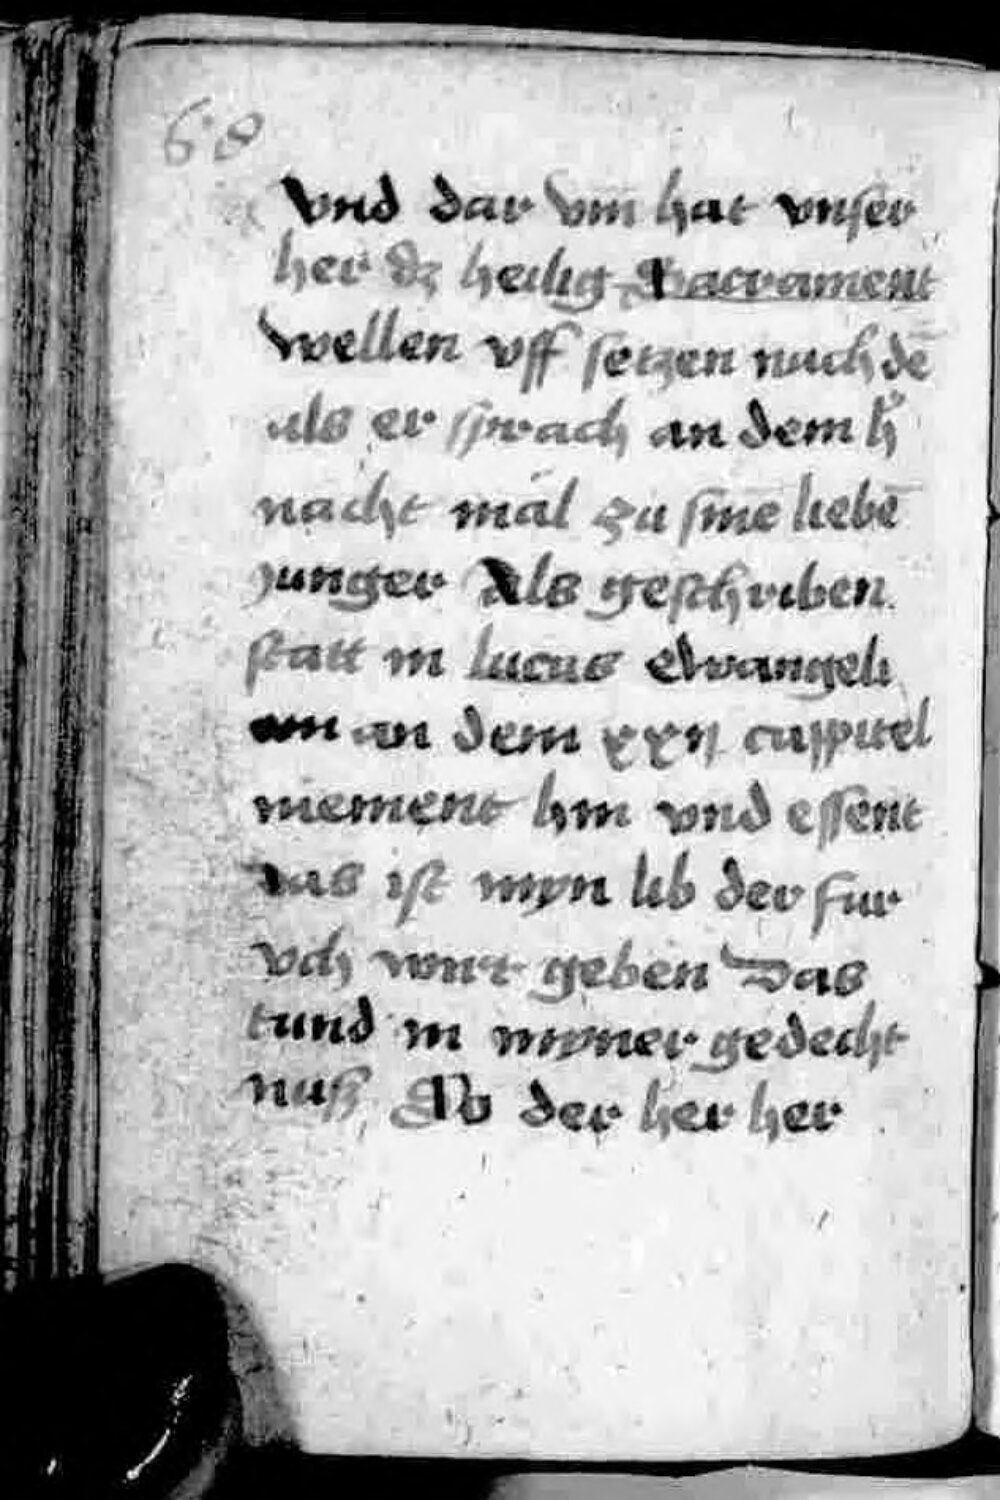 68
Vnd dar vm̄ hat vnser
her dz heilig Sacrament
wellen vff setzen nach dē
als er sprach an dem h̊
nacht mal zu sinē liebē
junger Als geschriben
statt in lucas ewangeli
um an dem xxij cappitel
niement hin vnd essent
das ist myn lib der fur
vch wurt geben Das
tund in myner gedecht
nuß So der her her